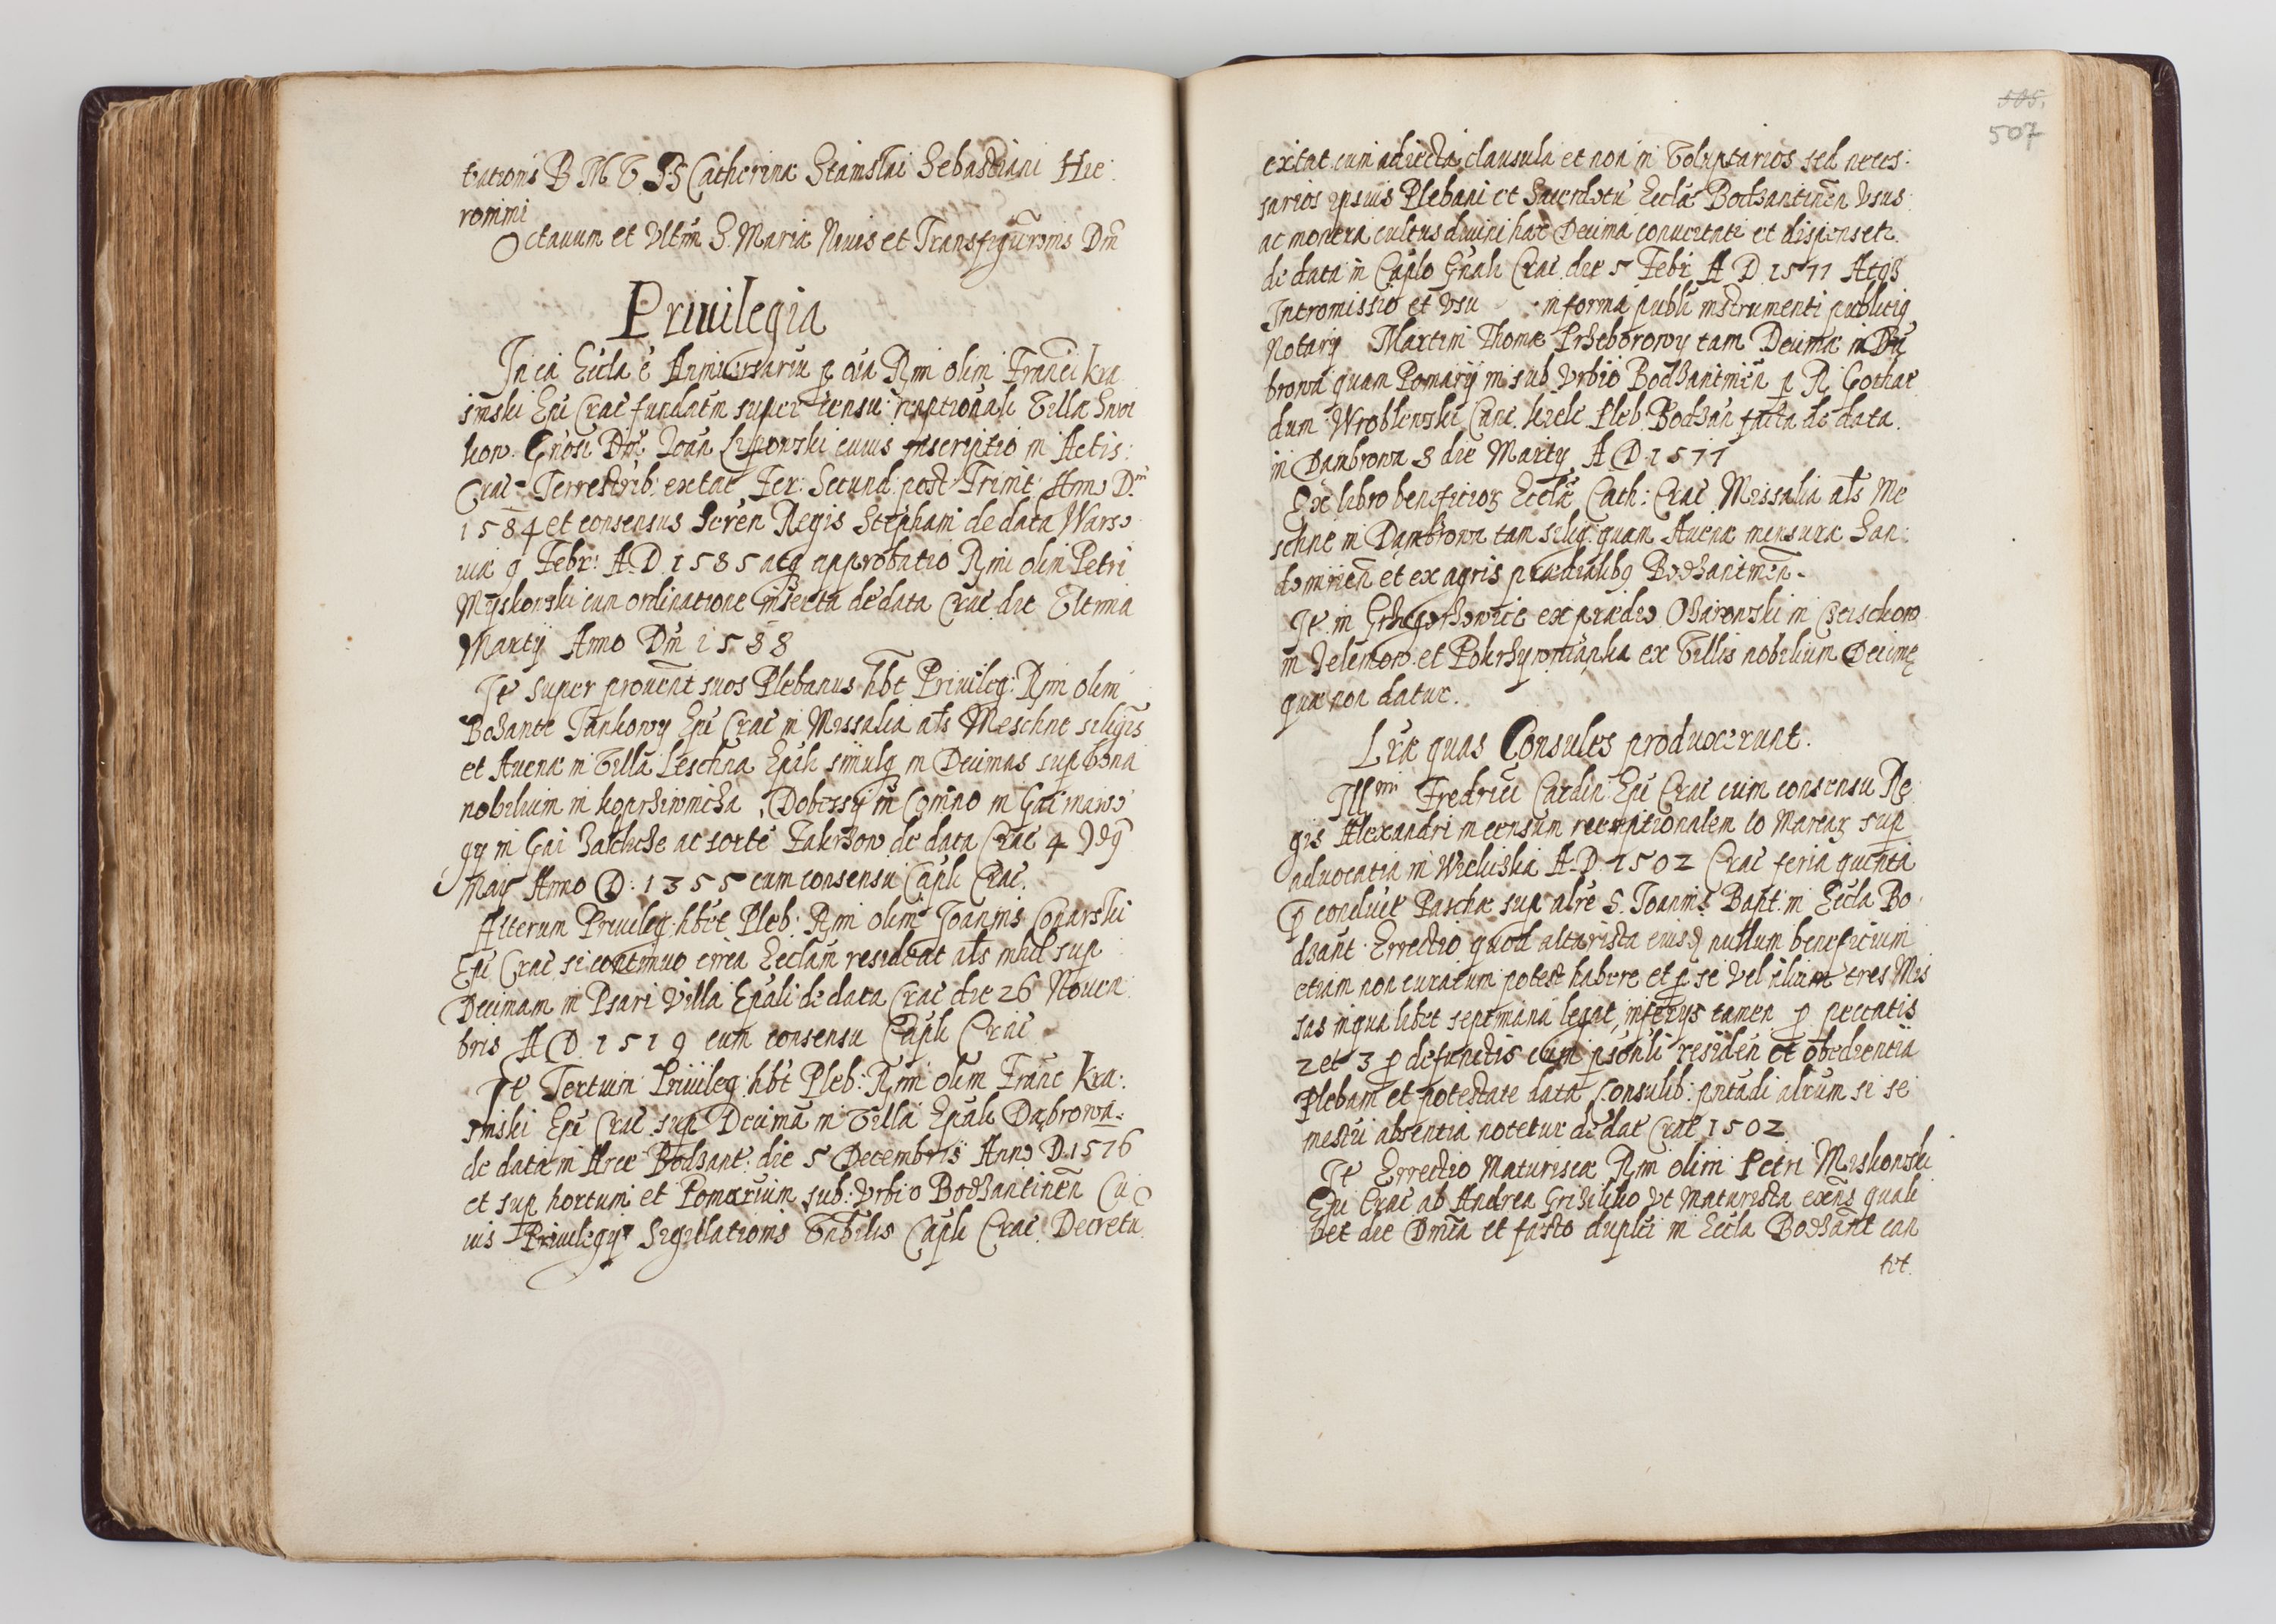 tationis B M V SS Catherinæ Stanislai Sebastiani Hie:
ronimi
Octauum et Vltim S. Mariæ Niuis et Transfiguronis Dni
Priuilegia
In ea Eccla e Anniuersariu p oia Rmi olim Franci Kra
sinski Epi Crac fundatm super censu remptionali Villæ
kow. Gnosi Dni Joan Lipowski cuius inscriptio in Actis:
Crac Terrestrib. extat Fer: Secund. post Trinit Anno Dni
1584 et consensus Seren Regis Stephani de data Warso
uiæ 9 Febr: A. D. 1585 atq approbatio Rmi olim Petri
Myskowski cum ordinatione inserta de data Crac die Vltima
Martij Anno Dni 1588
It super prouent suos Plebanus hbt Priuileg: Rmi olim
Bodzante Jankowy Epi Crac in Missalia als Meschne siligis
et Auenæ in Villa Leschna Epali simulq in Decimas sup bona
nobilium in koprhiwnicza, Dobessy in Comno in Gai
gy in Gai Zalichse ac sorte Fakrzow de data Crac 4
Maij Anno D: 1355 cum consensu Capli Crac.
Alterum Priuileg: hbt Pleb: Rmi olim Joannis Conarski
Epi Crac si continuo circa Ecclam resideat als nihil sup
Decimam in Psari Villa Epali de data Crac die 26 Nouem
bris A D. 1519 cum consensu Capli Crac
It Tertium Priuileg: hbt Pleb: Rmi olim Franc Kra:
sinski Epi Crac sup Decima in Villa Epali Dąbrowa.
de data in Arce Bodzant: die 5 Decembris Anno D. 1576
et sup hortum et Pomarium sub: Vrbio Bodzantinen Cu
ius Priuilegij Sigillationis Vnbilis Capli Crac. Decretu
505.
507
extat cum adiecta clausula et non in Voluptarios sed neces:
sarios ipsius Plebani et Sacerdotu Ecclæ Bodzantinen Vsus
ac monera cultus diuini hac Decima conuertate et dispenset.
de data in Caplo Gnali Crac. die 5 Febr A D 1577 Atq
Intromissio et Vsu in forma publi instrumenti publiciq
Notarij Martini Thomæ Przeborowy tam Decimæ in Dą
browa quam Pomarij in sub Vrbio Bodzantinen p R Gothar
dum Wroblewski Canc. kielc. Pleb. Bodzan facta de data.
in Dambrowa 8 die Martij A D 1577
Ex libro beneficior Ecclæ Cath: Crac Missalia als Me
schne in Dambrowa tam silig. quam Auenæ mensuræ San:
domirien et ex agris prædialibq Bodzantinen.
It in Grhegorzowice ex prædio Ozarowski in Czeschow
in Jelenow. et Pokrzywnianka ex Villis nobilium Decimę
quæ non datur.
Lræ quas Consules produxerunt.
Illmi Fredrici Cardin Epi Crac cum consensu Re
gis Alexandri in censum reemptionalem 10 Marcar sup
aduocatia in Wieliczka A. D. 1502 Crac feria quinta
p conduct Paschæ sup altre S. Joannis Bapt. in Eccla Bo
dzant Errectio quod altarista eiusd nullum beneficium
etiam non curatum potest habere et p se vel alium tres Mis
sas in qua libet septimana legat, inferijs tamen p peccatis
2 et 3 p defunctis cum psonli residen et obedientia
Plebani et potestate data Consulib: pntadi altum si se
mestri absentia notetur de dat Crac 1502
It Errectio Maturistæ Rmi olim Petri Miskowski
Epi Crac ab Andrea Grizilko vt Maturista exens quali
bet die Dmica et festo duplici in Eccla Bodzant can
tet.